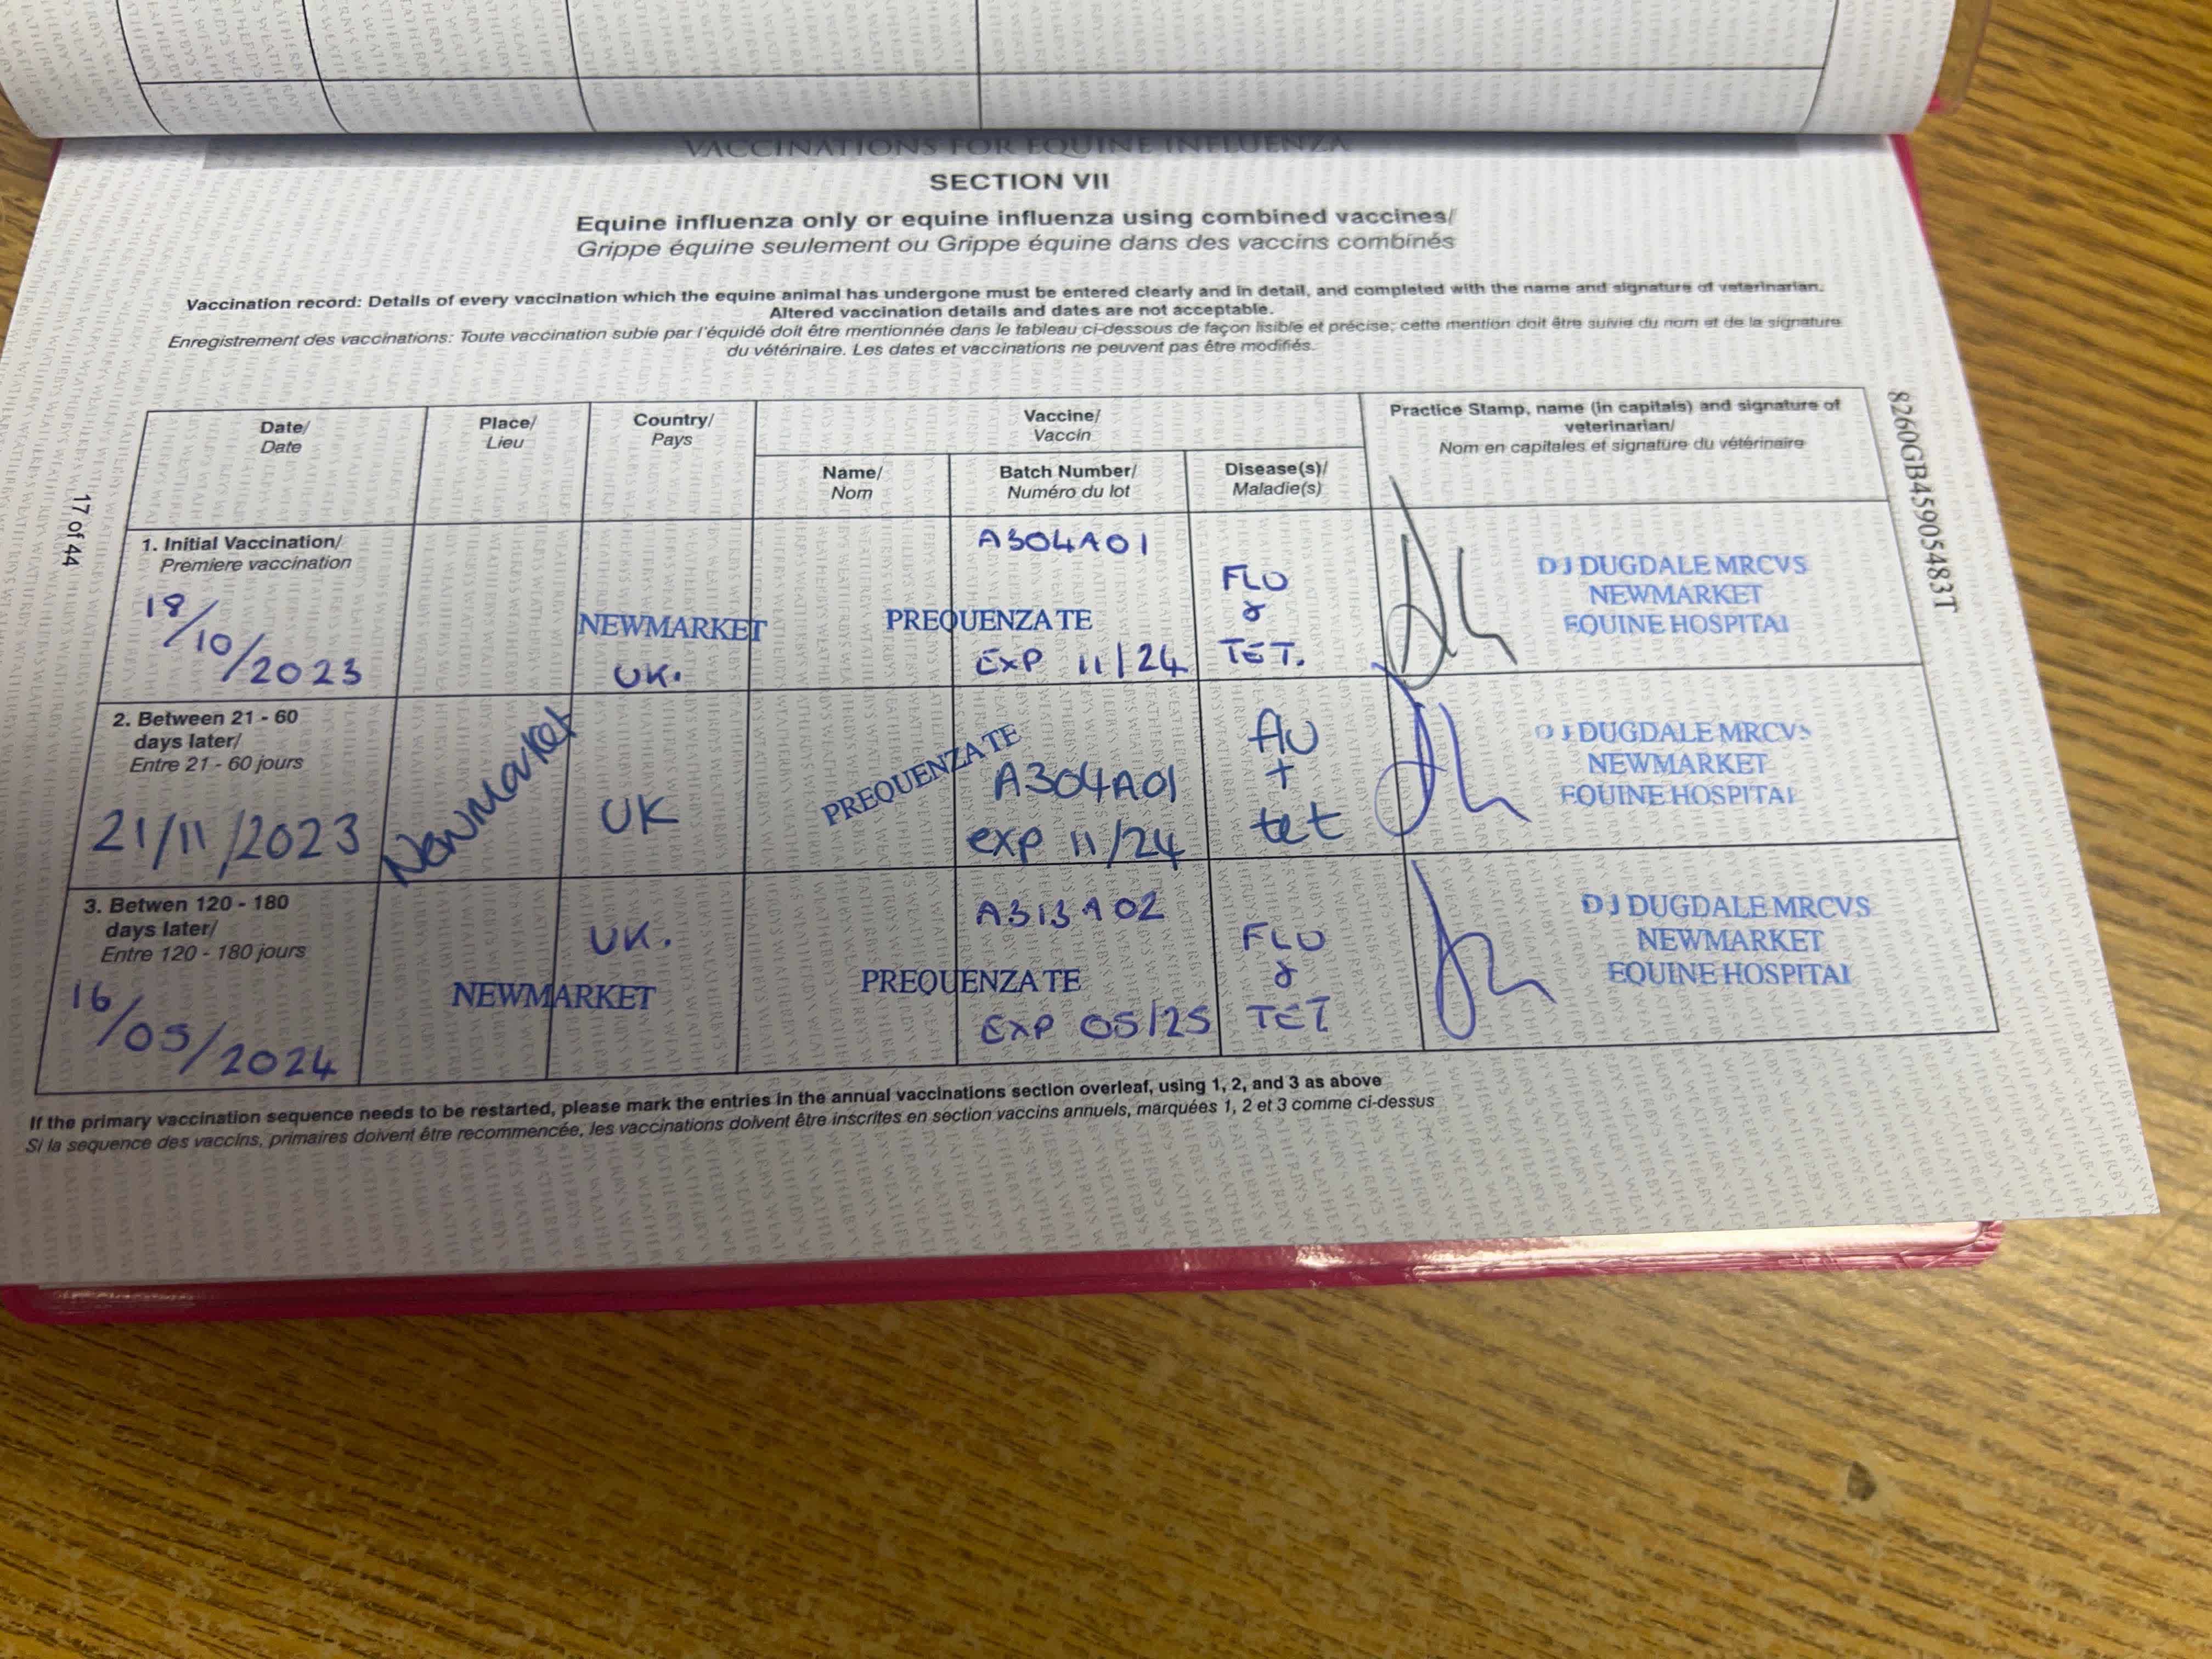 VACCINATIONS FOR EQUINE INFLUENZA
SECTION VII
Equine influenza only or equine influenza using combined vaccines/
Grippe équine seulement ou Grippe équine dans des vaccins combinés
Vaccination record: Details of every vaccination which the equine animal has undergone must be entered clearly and in detail, and completed with the name and signature of veterinarian.
Altered vaccination details and dates are not acceptable.
Enregistrement des vaccinations: Toute vaccination subie par l'équidé doit être mentionnée dans le tableau ci-dessous de façon lisible et précise; cette mention doit être suivie du nom et de la signature
du vétérinaire. Les dates et vaccinations ne peuvent pas être modifiés.
Date/
Date
Place/
Lieu
Country/
Pays
Vaccine/
Vaccin
Name/
Nom
Batch Number/
Numéro du lot
Disease(s)/
Maladie(s)
Practice Stamp, name (in capitals) and signature of
veterinarian/
Nom en capitales et signature du vétérinaire
1. Initial Vaccination/
Premiere vaccination
18/10/2023
NEWMARKET
UK.
PREQUENZA TE
A304A01
EXP 11/24
FLU
&
TET.
D J DUGDALE MRCVS
NEWMARKET
EQUINE HOSPITAL
2. Between 21 - 60
days later/
Entre 21 - 60 jours
21/11/2023
Newmarket
UK
PREQUENZA TE
A304A01
exp 11/24
flu
+
tet
D J DUGDALE MRCVS
NEWMARKET
EQUINE HOSPITAL
3. Betwen 120 - 180
days later/
Entre 120 - 180 jours
16/05/2024
UK.
NEWMARKET
PREQUENZA TE
A313A02
EXP 05/25
FLU
&
TET
D J DUGDALE MRCVS
NEWMARKET
EQUINE HOSPITAL
If the primary vaccination sequence needs to be restarted, please mark the entries in the annual vaccinations section overleaf, using 1, 2, and 3 as above
Si la sequence des vaccins, primaires doivent être recommencée, les vaccinations doivent être inscrites en section vaccins annuels, marquées 1, 2 et 3 comme ci-dessus
17 of 44
8260GB45905483T